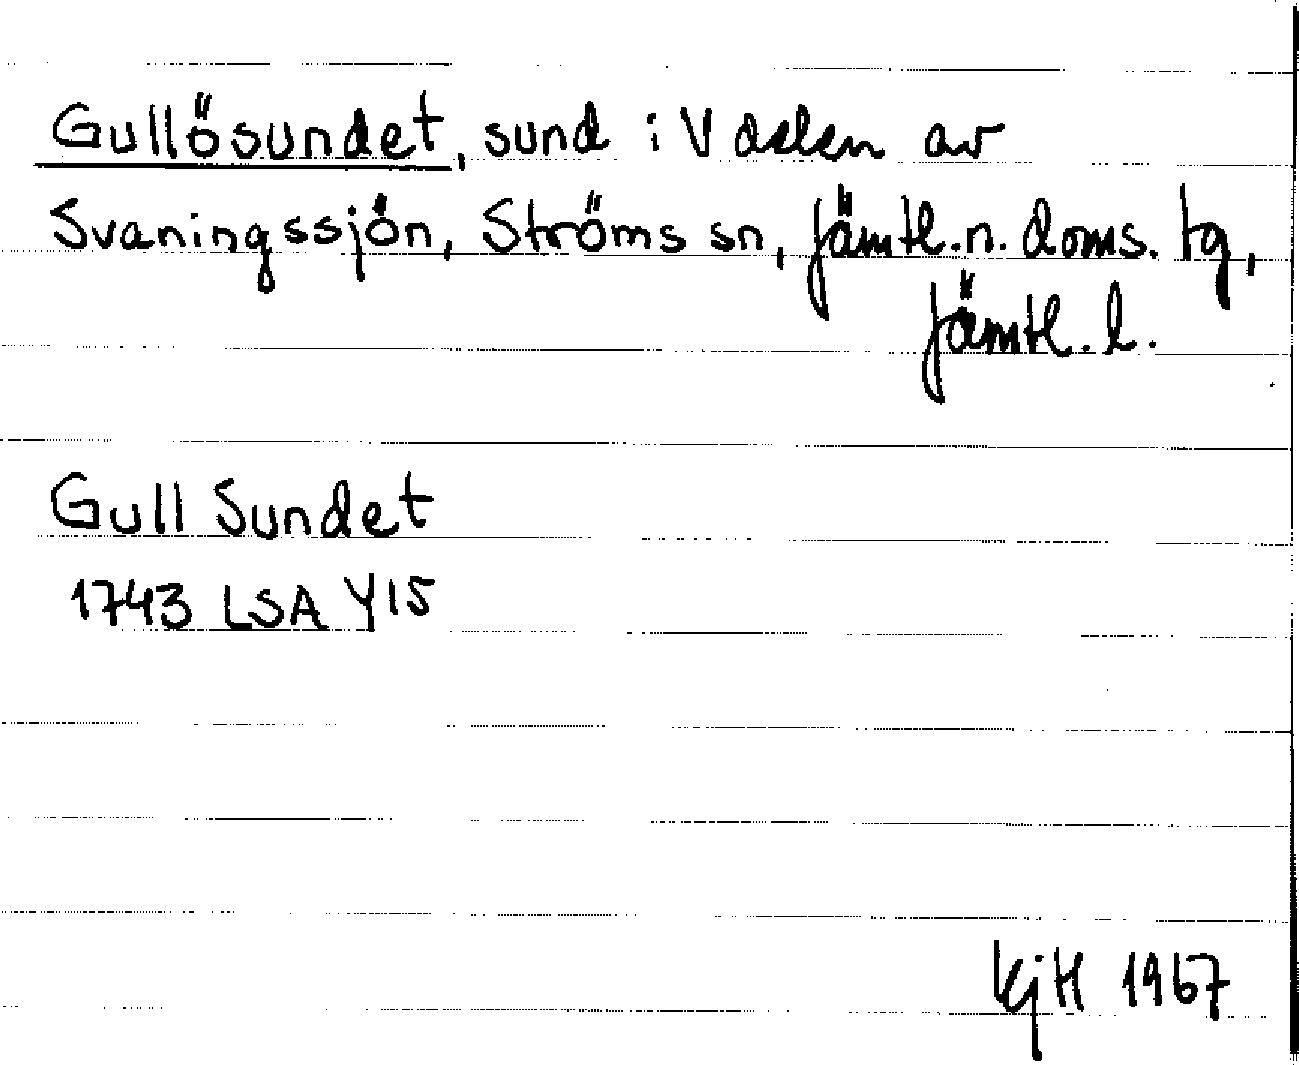 Gullösundet, sund i V delen av
Svaningssjön, Ströms sn, Jämtl. n. doms. tg,
Jämtl. l.
Gull Sundet
1743 LSA Y15
KjH 1967